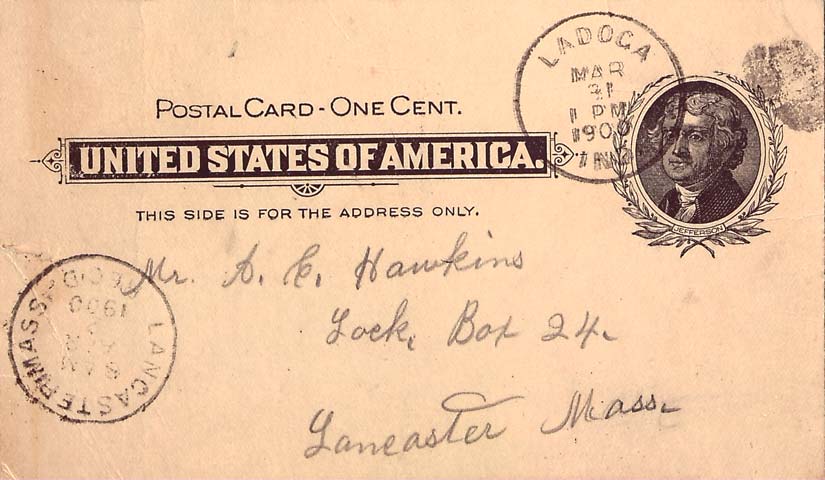 LADOGA
MAR
31
1 PM
1900
IND.
POSTAL CARD - ONE CENT.
UNITED STATES OF AMERICA.
JEFFERSON
THIS SIDE IS FOR THE ADDRESS ONLY.
Mr. A. E. Hawkins
Lock. Box 24.
Lancaster Mass.
LANCASTER MASS. REC'D.
8 AM
APR
1900